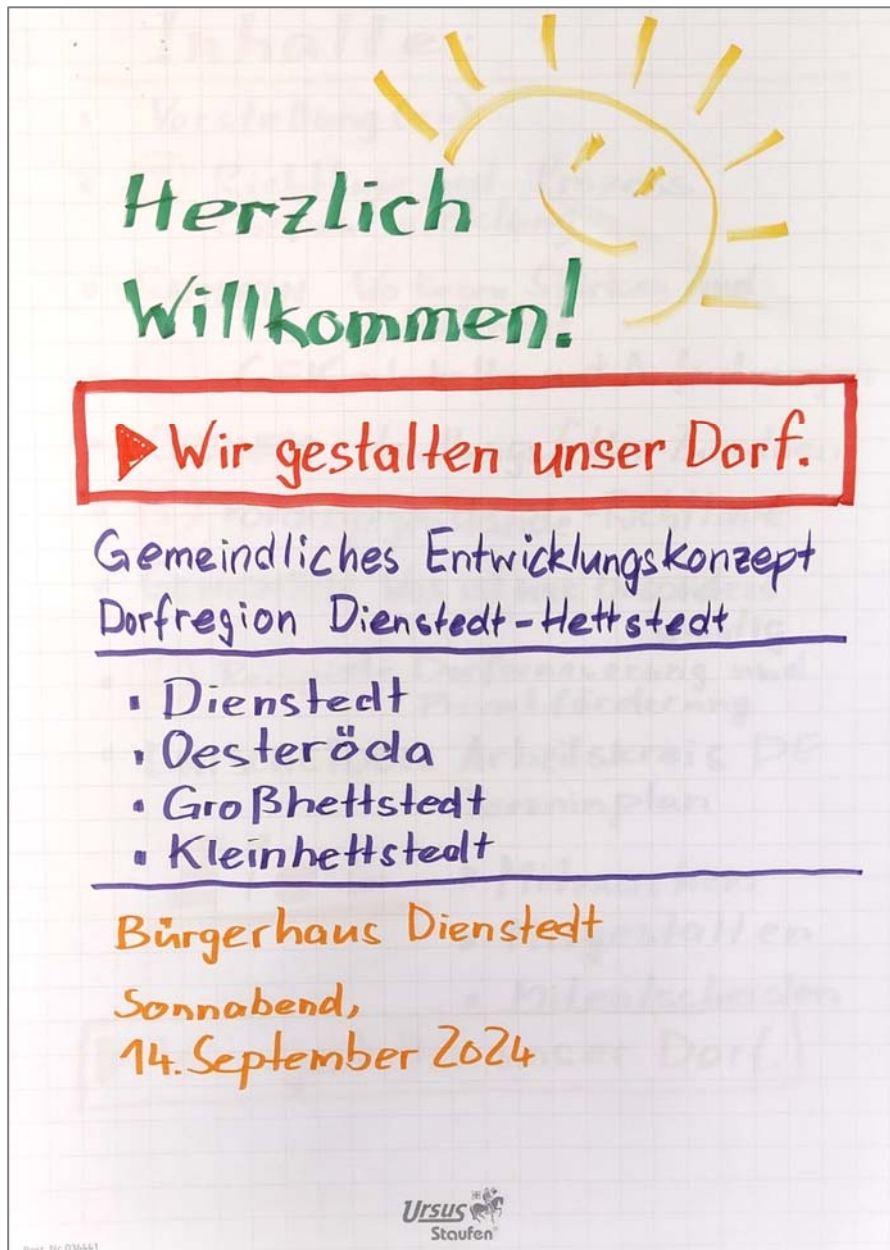 Herzlich
Willkommen!
Wir gestalten unser Dorf.
Gemeindliches Entwicklungskonzept
Dorfregion Dienstedt-Hettstedt
▪ Dienstedt
▪ Oesteröda
▪ Großhettstedt
▪ Kleinhettstedt
Bürgerhaus Dienstedt
Sonnabend,
14. September 2024
Ursus
Staufen